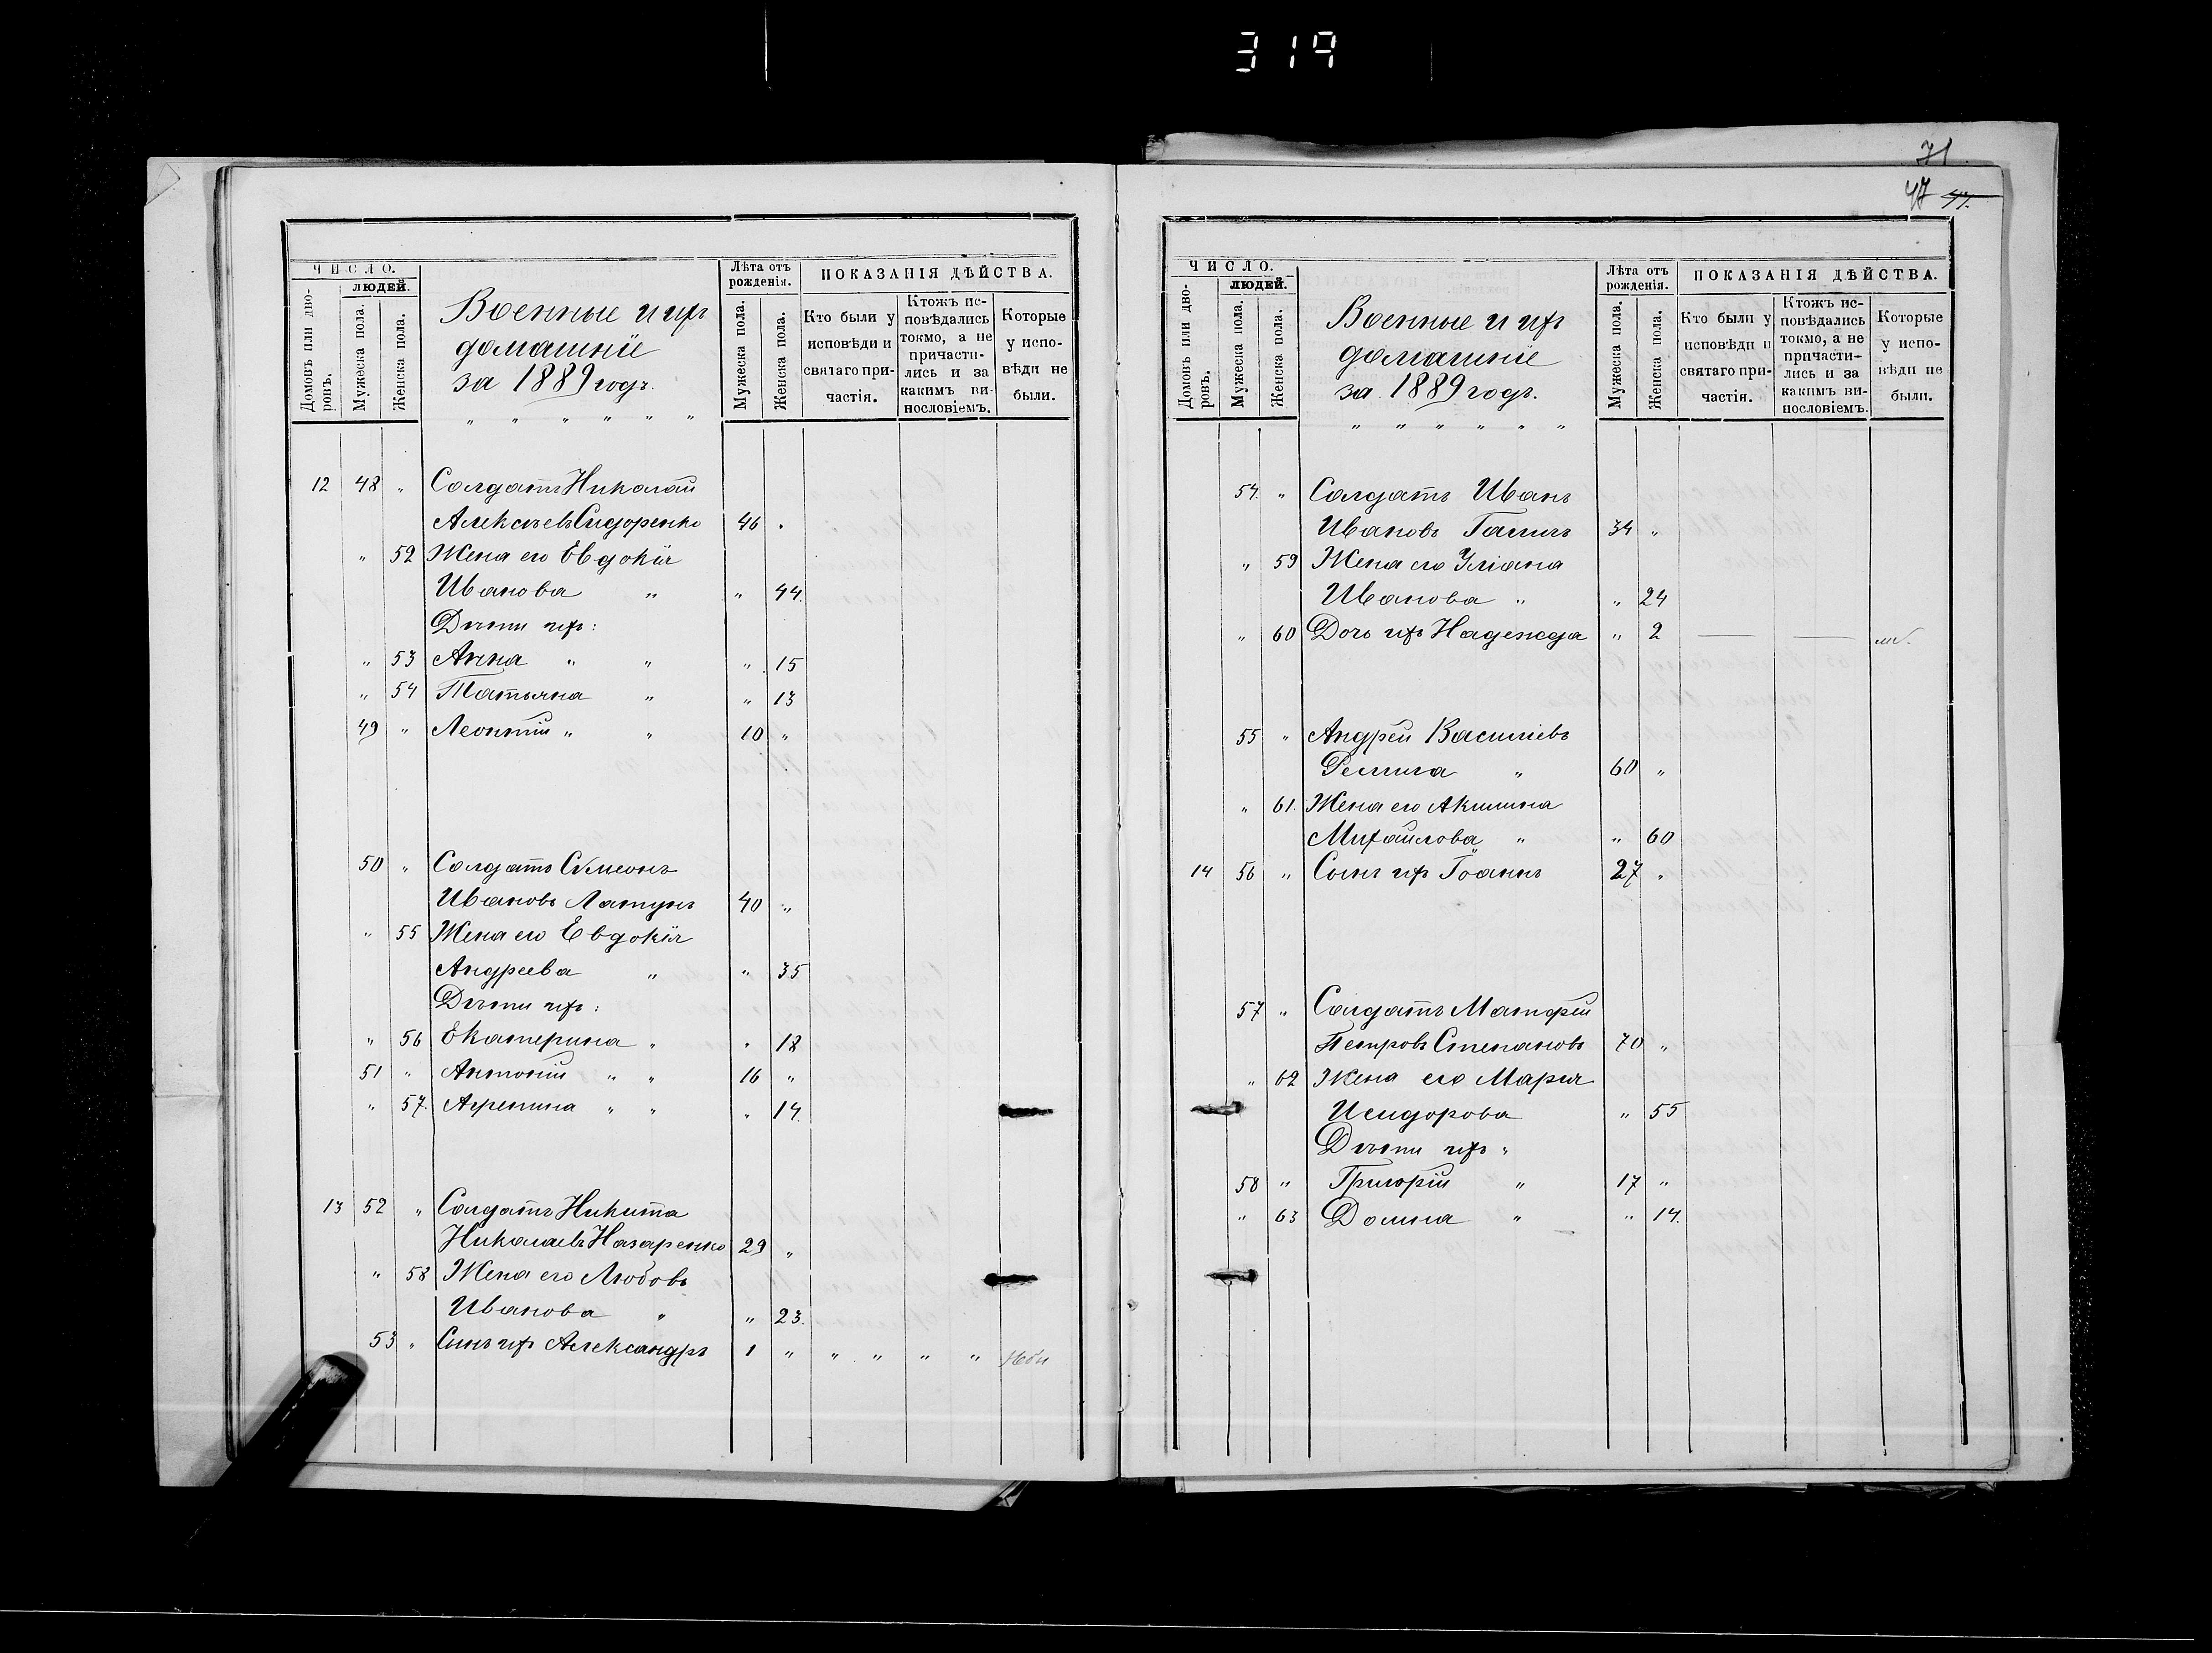 319
71
47 47.
ЧИСЛО.
людей.
Домовъ или дворовъ.
Мужеска пола.
Женска пола.
Военные и ихъ
домашніе
за 1889 годъ.
" " " " " "
Лѣта отъ рожденія.
Мужеска пола.
Женска пола.
ПОКАЗАНІЯ ДѢЙСТВА.
Кто были у исповѣди и святаго причастія.
Ктожъ исповѣдались токмо, а не причастились и за какимъ винословіемъ.
Которые у исповѣди не были.
12 48 " Солдатъ Николай
Алексѣевъ Сидоренко 46 "
" 52 Жена его Евдокія
Иванова " " 44.
Дѣти ихъ:
" 53 Анна " " " 15
" 54 Татьяна " " 13
49 " Леонтій " " 10 "
50 " Солдатъ Симеонъ
Ивановъ Латунъ 40 "
" 55 Жена его Евдокія
Андреева " " 35
Дѣти ихъ:
" 56 Екатерина " " 18
51 " Антоній " " 16 "
" 57. Агрепина " " " 14.
13 52 " Солдатъ Никита
Николаевъ Назаренко 29 "
" 58 Жена его Любовь
Иванова " " 23.
53 " Сынъ ихъ Александръ 1 " " " " "
ЧИСЛО.
людей.
Домовъ или дворовъ.
Мужеска пола.
Женска пола.
Военные и ихъ
домашніе
за 1889 годъ.
" " " " " "
Лѣта отъ рожденія.
Мужеска пола.
Женска пола.
ПОКАЗАНІЯ ДѢЙСТВА.
Кто были у исповѣди и святаго причастія.
Ктожъ исповѣдались токмо, а не причастились и за какимъ винословіемъ.
Которые у исповѣди не были.
54. " Солдатъ Иванъ
Ивановъ 34 "
" 59 Жена его Уліана
Иванова " " 24
" 60 Дочь ихъ Надежда " 2 — —
55 " Андрей Василіевъ
" 60 "
" 61. Жена его Акилина
Михайлова " " 60
14 56 " Сынъ ихъ Іоаннъ 27 "
57 " Солдатъ Матфей
Петровъ Степановъ 70 "
" 62 Жена его Марія
Исидорова " 55
Дѣти ихъ "
58 " Григорій " 17 "
" 63 Домна " " 14.